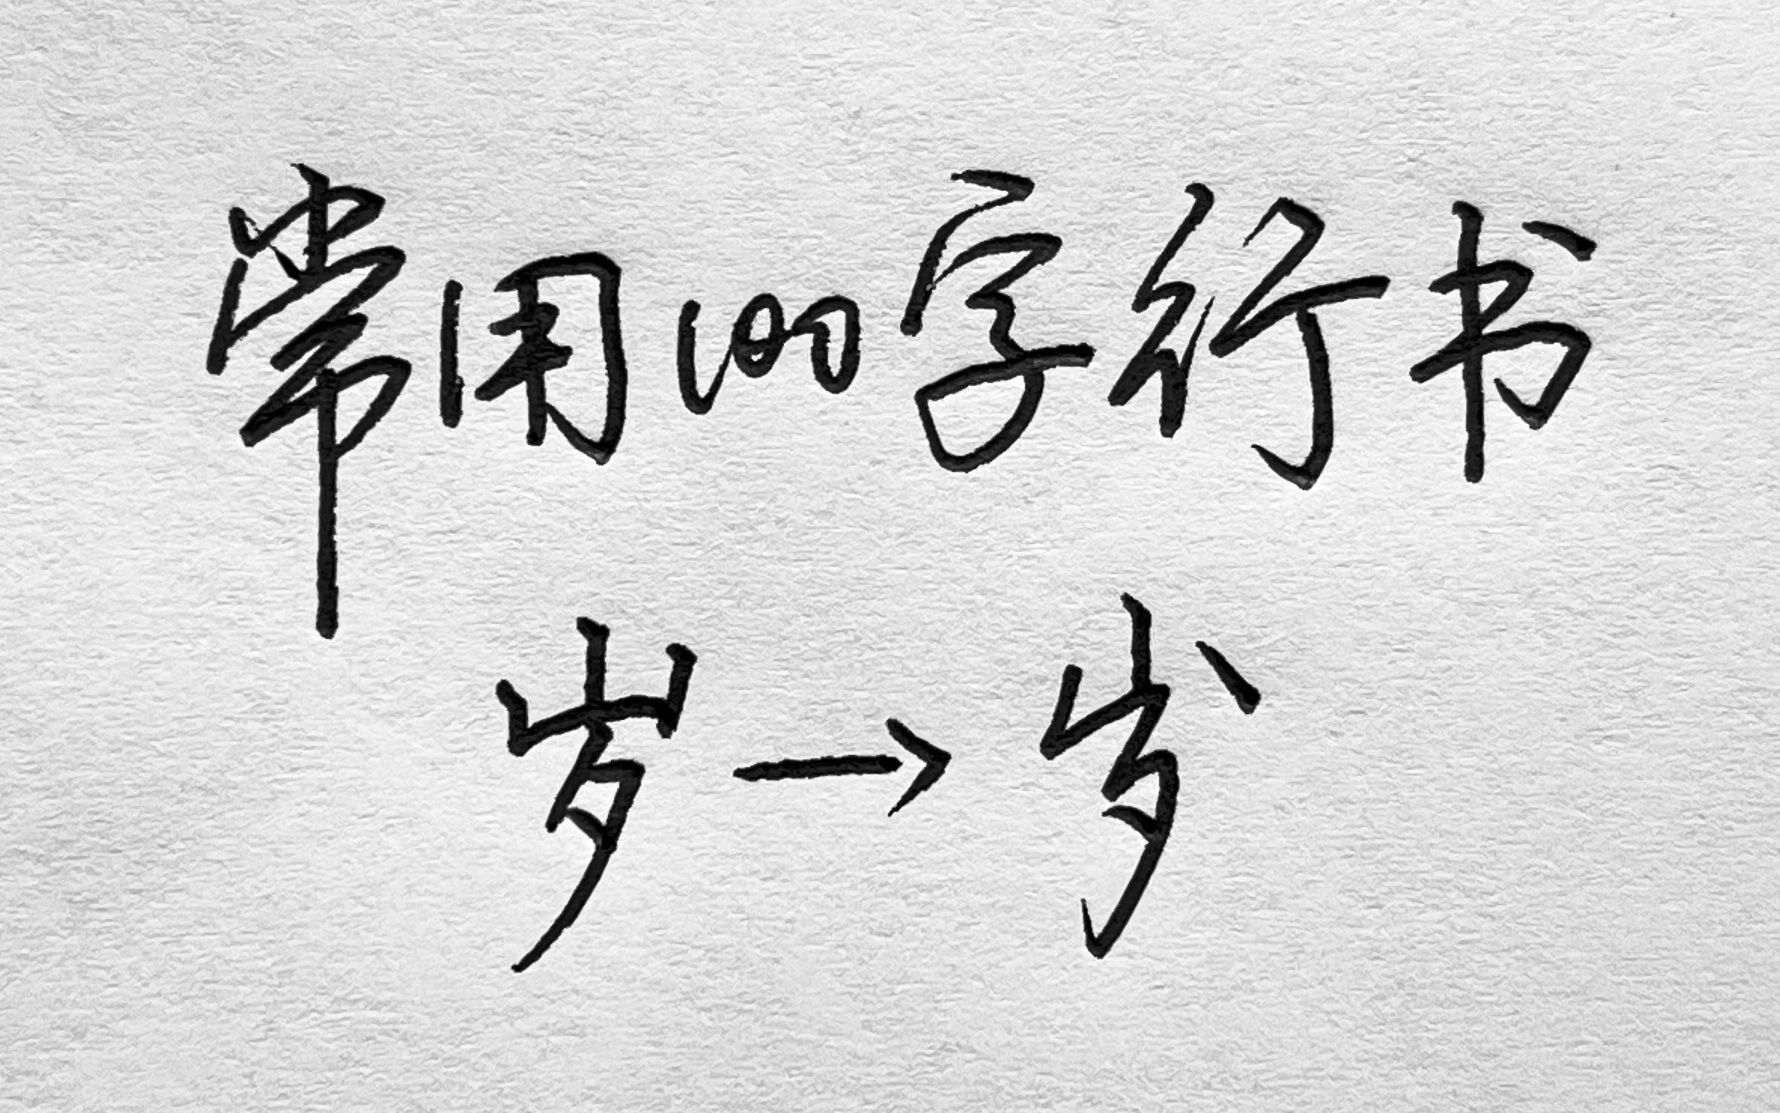 常用100字行书
岁→岁